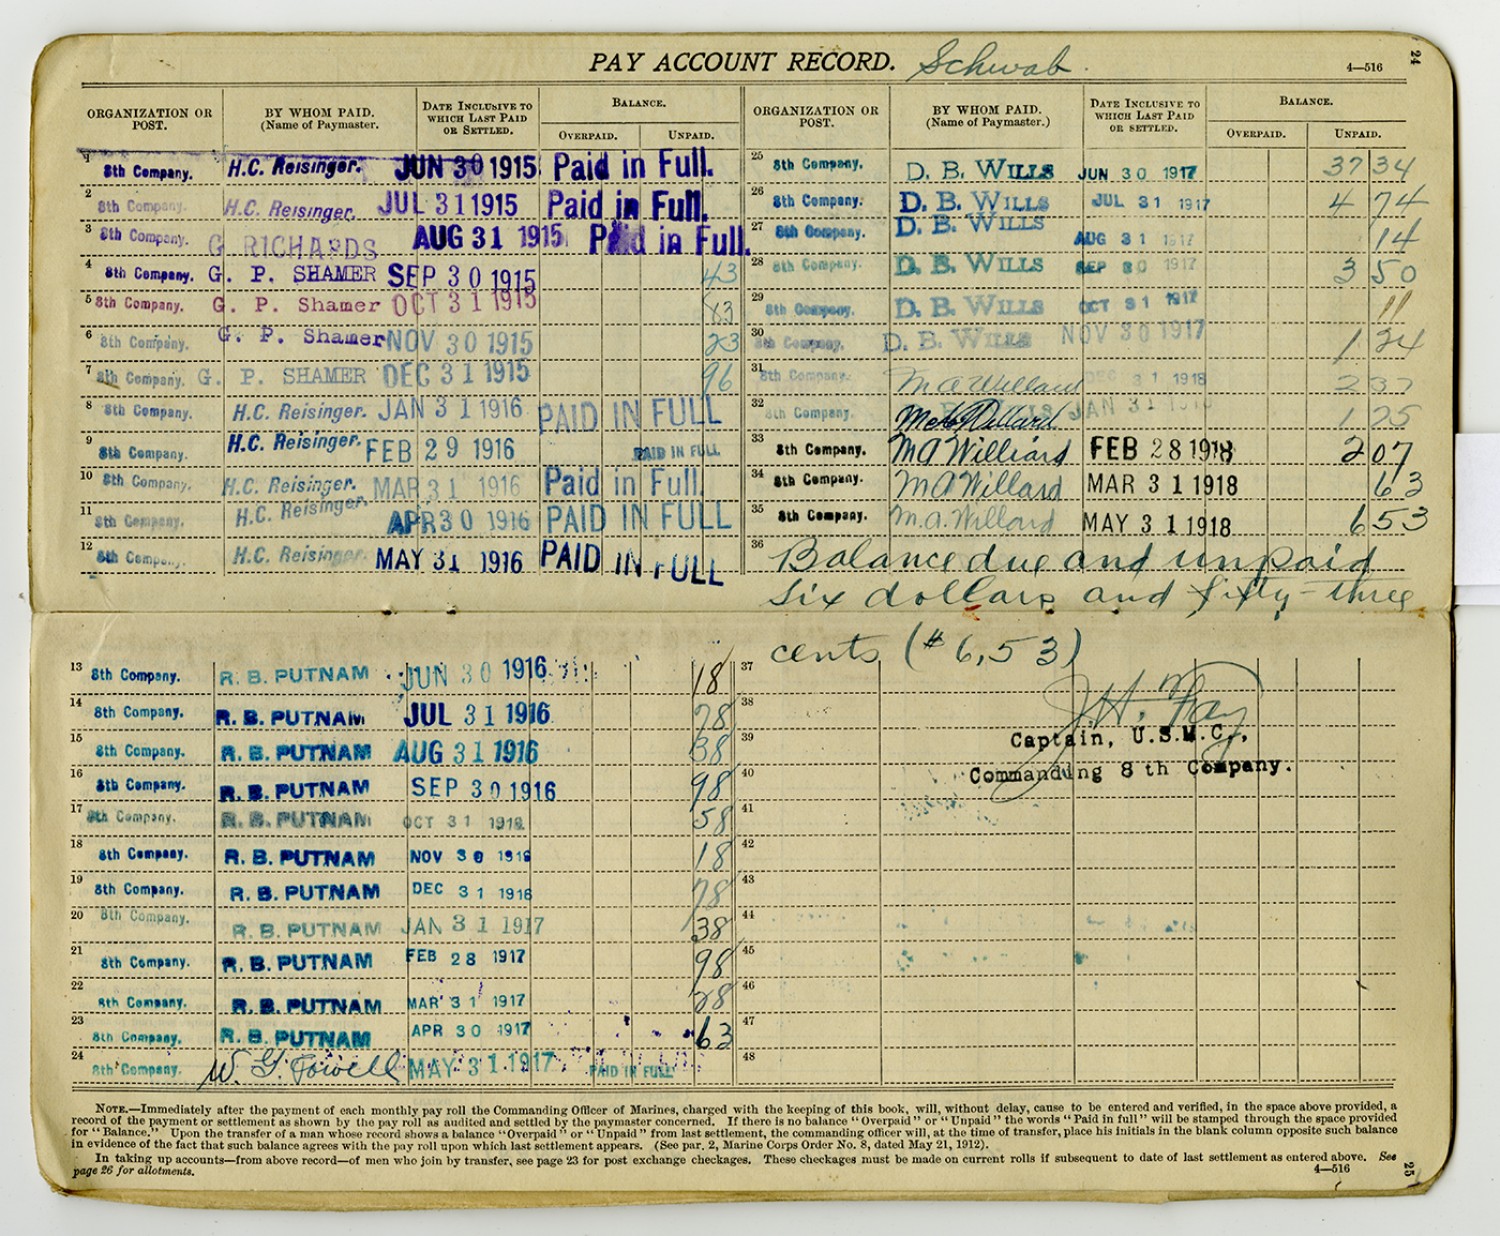 PAY ACCOUNT RECORD. Schwab.
4—516
24
ORGANIZATION OR POST. BY WHOM PAID. (Name of Paymaster. DATE INCLUSIVE TO WHICH LAST PAID OR SETTLED. BALANCE. OVERPAID. UNPAID.
1 8th Company. H.C. Reisinger. JUN 30 1915 Paid in Full.
2 8th Company. H.C. Reisinger. JUL 31 1915 Paid in Full.
3 8th Company. G RICHARDS AUG 31 1915 Paid in Full.
4 8th Company. G. P. SHAMER SEP 30 1915 43
5 8th Company. G. P. Shamer OCT 31 1915 83
6 8th Company. G. P. Shamer NOV 30 1915 23
7 8th Company. G. P. SHAMER DEC 31 1915 96
8 8th Company. H.C. Reisinger. JAN 31 1916 PAID IN FULL
9 8th Company. H.C. Reisinger. FEB 29 1916 PAID IN FULL
10 8th Company. H.C. Reisinger. MAR 31 1916 Paid in Full.
11 8th Company. H.C. Reisinger. APR 30 1916 PAID IN FULL
12 8th Company. H.C. Reisinger. MAY 31 1916 PAID IN FULL
13 8th Company. R. B. PUTNAM JUN 30 1916 18
14 8th Company. R. B. PUTNAM JUL 31 1916 78
15 8th Company. R. B. PUTNAM AUG 31 1916 38
16 8th Company. R. B. PUTNAM SEP 30 1916 98
17 8th Company. R. B. PUTNAM OCT 31 1916 58
18 8th Company. R. B. PUTNAM NOV 30 1916 18
19 8th Company. R. B. PUTNAM DEC 31 1916 78
20 8th Company. R. B. PUTNAM JAN 31 1917 38
21 8th Company. R. B. PUTNAM FEB 28 1917 98
22 8th Company. R. B. PUTNAM MAR 31 1917 28
23 8th Company. R. B. PUTNAM APR 30 1917 63
24 8th Company. W. G. Powell MAY 31 1917 PAID IN FULL
ORGANIZATION OR POST. BY WHOM PAID. (Name of Paymaster.) DATE INCLUSIVE TO WHICH LAST PAID OR SETTLED. BALANCE. OVERPAID. UNPAID.
25 8th Company. D. B. WILLS JUN 30 1917 37 34
26 8th Company. D. B. WILLS JUL 31 1917 4 74
27 8th Company. D. B. WILLS AUG 31 1917 14
28 8th Company. D. B. WILLS SEP 30 1917 3 50
29 8th Company. D. B. WILLS OCT 31 1917 11
30 8th Company. D. B. WILLS NOV 30 1917 1 24
31 8th Company. M A Willard DEC 31 1918 2 37
32 8th Company. Willard JAN 31 1 25
33 8th Company. M A Williard FEB 28 1918 2 07
34 8th Company. M A Willard MAR 31 1918 63
35 8th Company. M. A. Willard MAY 31 1918 6 53
36 Balance due and unpaid
six dollars and fifty-three
cents ($6,53)
37
38 J. H. Fay
39 Captain, U.S.M.C.,
40 Commanding 8th Company.
41
42
43
44
45
46
47
48
NOTE.—Immediately after the payment of each monthly pay roll the Commanding Officer of Marines, charged with the keeping of this book, will, without delay, cause to be entered and verified, in the space above provided, a
record of the payment or settlement as shown by the pay roll as audited and settled by the paymaster concerned. If there is no balance "Overpaid" or "Unpaid" the words "Paid in full" will be stamped through the space provided
for "Balance." Upon the transfer of a man whose record shows a balance "Overpaid" or "Unpaid" from last settlement, the commanding officer will, at the time of transfer, place his initials in the blank column opposite such balance
in evidence of the fact that such balance agrees with the pay roll upon which last settlement appears. (See par. 2, Marine Corps Order No. 8, dated May 21, 1912).
In taking up accounts—from above record—of men who join by transfer, see page 23 for post exchange checkages. These checkages must be made on current rolls if subsequent to date of last settlement as entered above. See
page 26 for allotments.
4—516
25